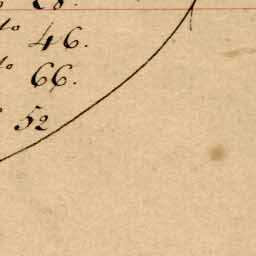 to 46.
to 66.
52